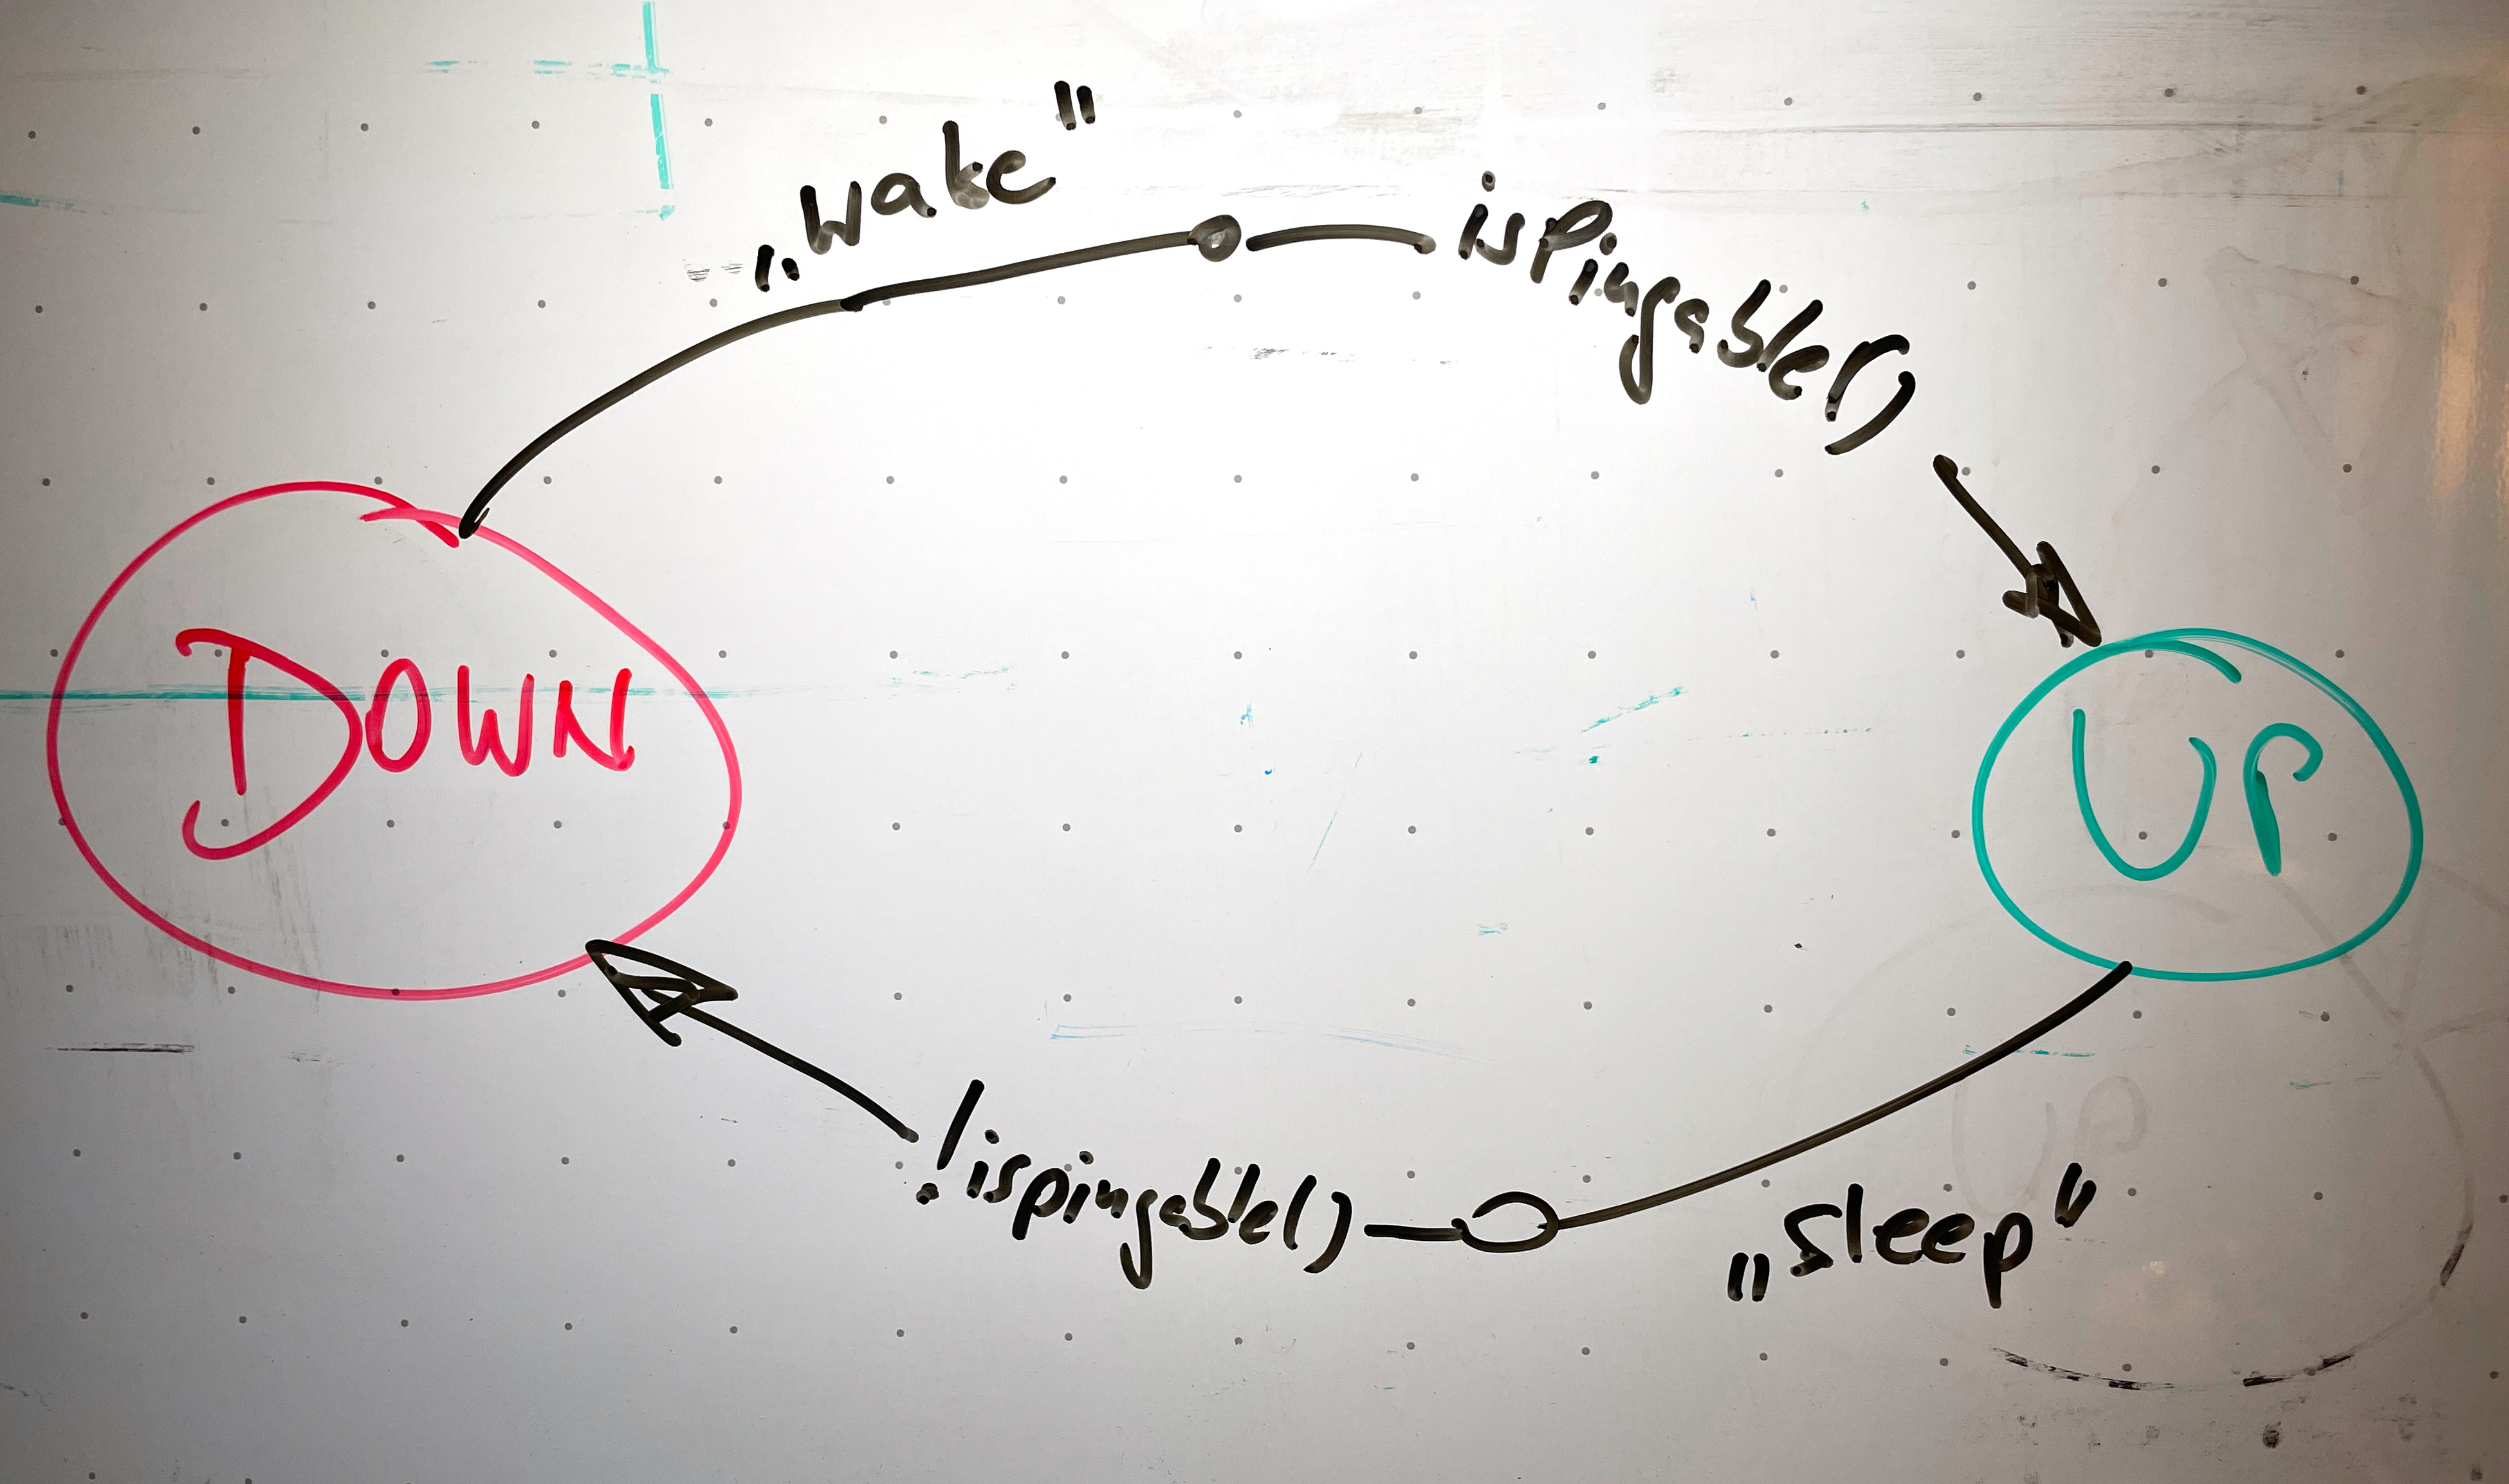 „wake"
isPingable()
DOWN
UP
!ispingable()
„sleep"
UP